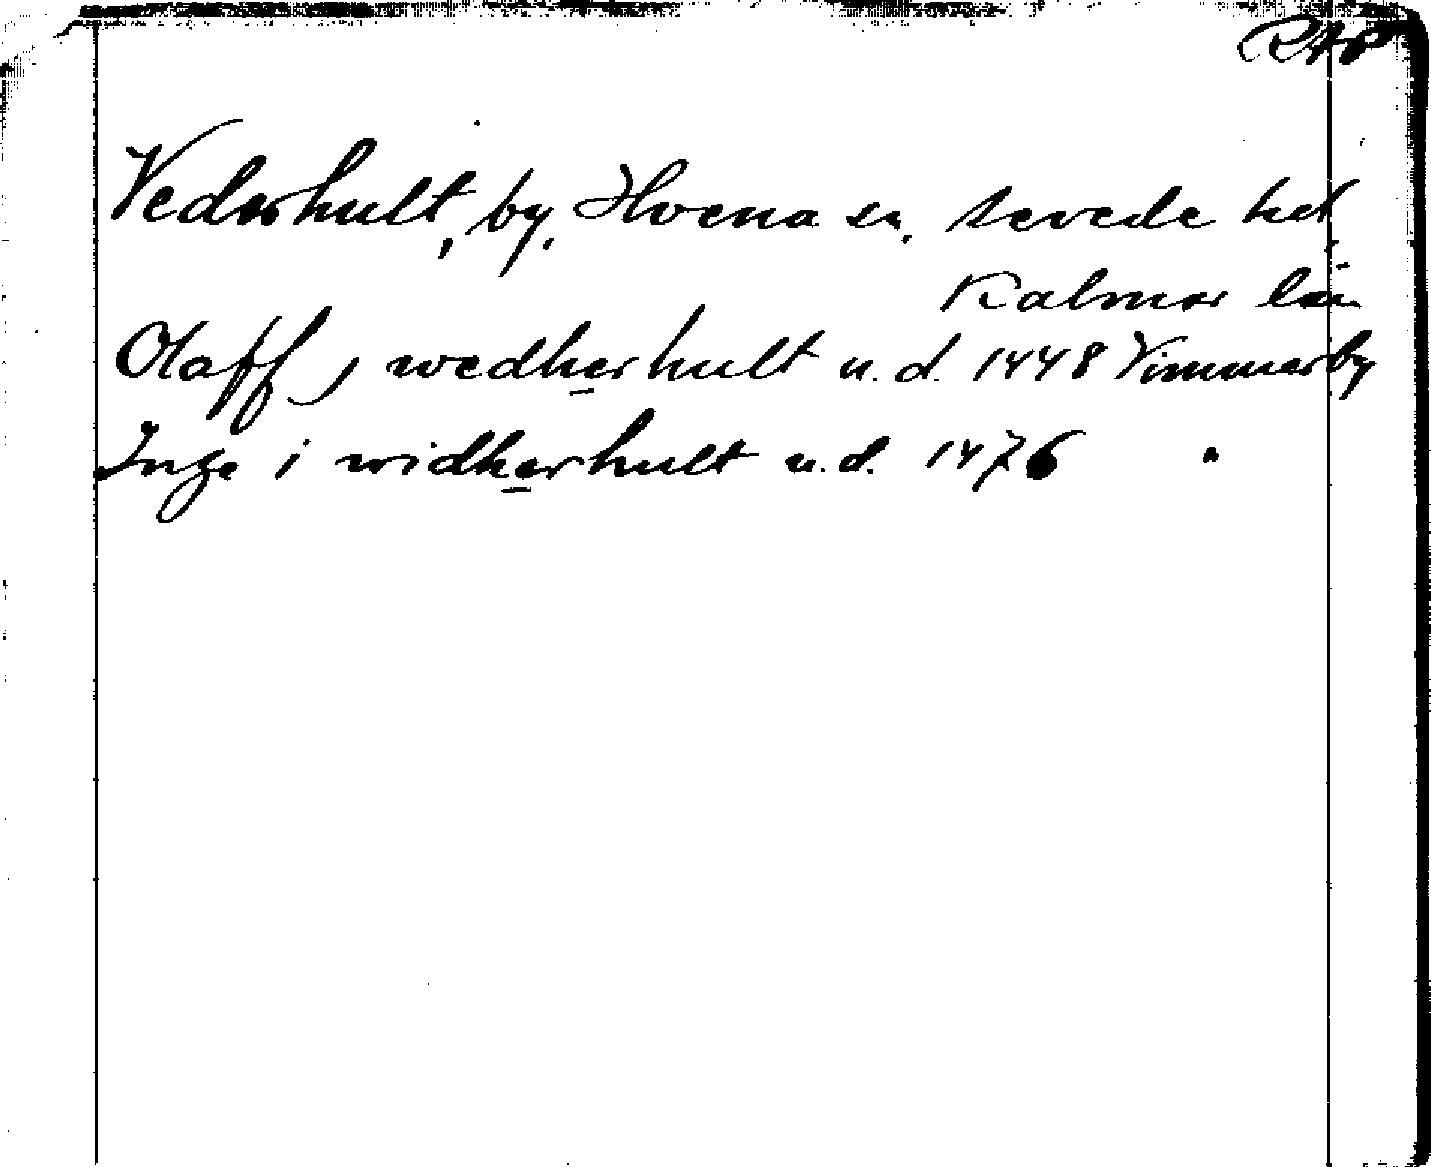 RAP
Vederhult, by, Hvena sn, Sevede hd,
Kalmar län
Olaff j wedherhult u.d. 1448 Vimmerby
Inge i widherhult u.d. 1476 "